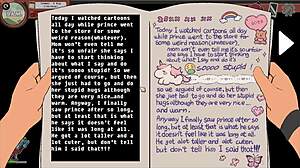 Today I watched cartoons
all day while prince went
to the store for some
weird reason(whatever).
Mom won't even tell me
it's so unfair she says I
have to start thinking
about what I say and do
it's soooo stupid! So we
argued of course, but then
she just had to go and do
her stupid hugs although
they are very nice…and
warm. Anyway, I finally
saw prince after so long,
but at least that is what
he says it doesn't feel
like it was long at all.
He got a lot taller and a
lot cuter, but don't tell
him I said that!!!
Today I watched cartoons all day
while prince went to the store for
some weird reason (whatever).
mom won't even tell me it's so unfair
she says I have to start thinking
about what I say and do it's
soooo stupid!
So we argued of course, but then
she just had to go and do her stupid
hugs although they are very nice...
and warm.
Anyway, I finally saw prince after
so long, but at least that is what he says
it doesn't feel like it was long at all.
He got a lot taller and a lot
cuter, but don't tell him I said that!!!